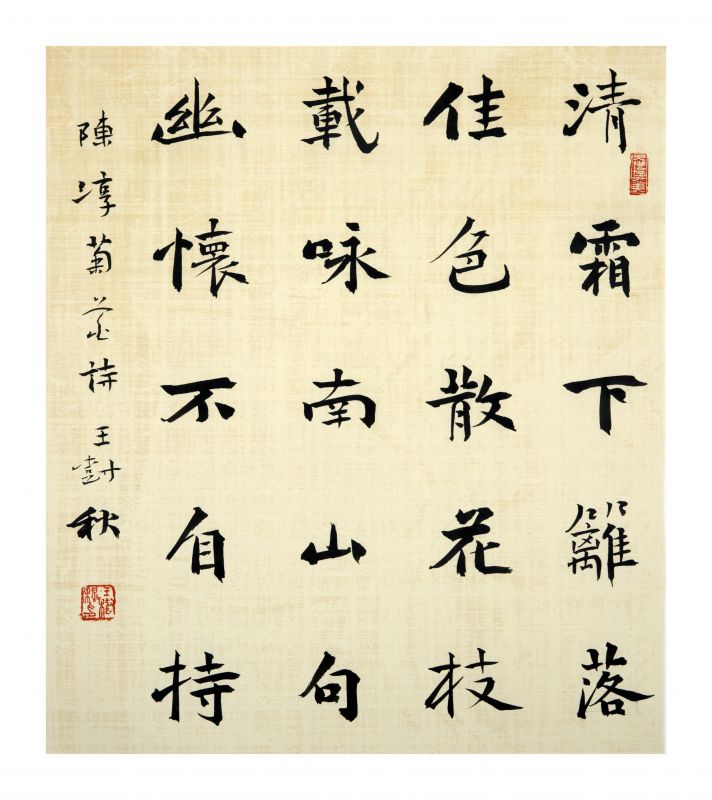 清霜下籬落
佳色散花枝
載咏南山句
幽懷不自持
陳淳菊花詩 王樹秋